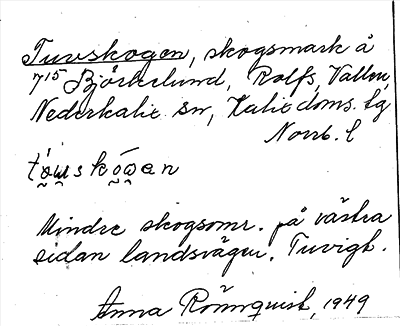 Tuvskogen, skogsmark å
715 Björkelund, Rolfs, Vallen,
Nederkalix sn, Kalix doms. lg
Norrb. l
Mindre skogsomr. på västra
sidan landsvägen. Tuvigt.
Anna Rönnquist, 1949